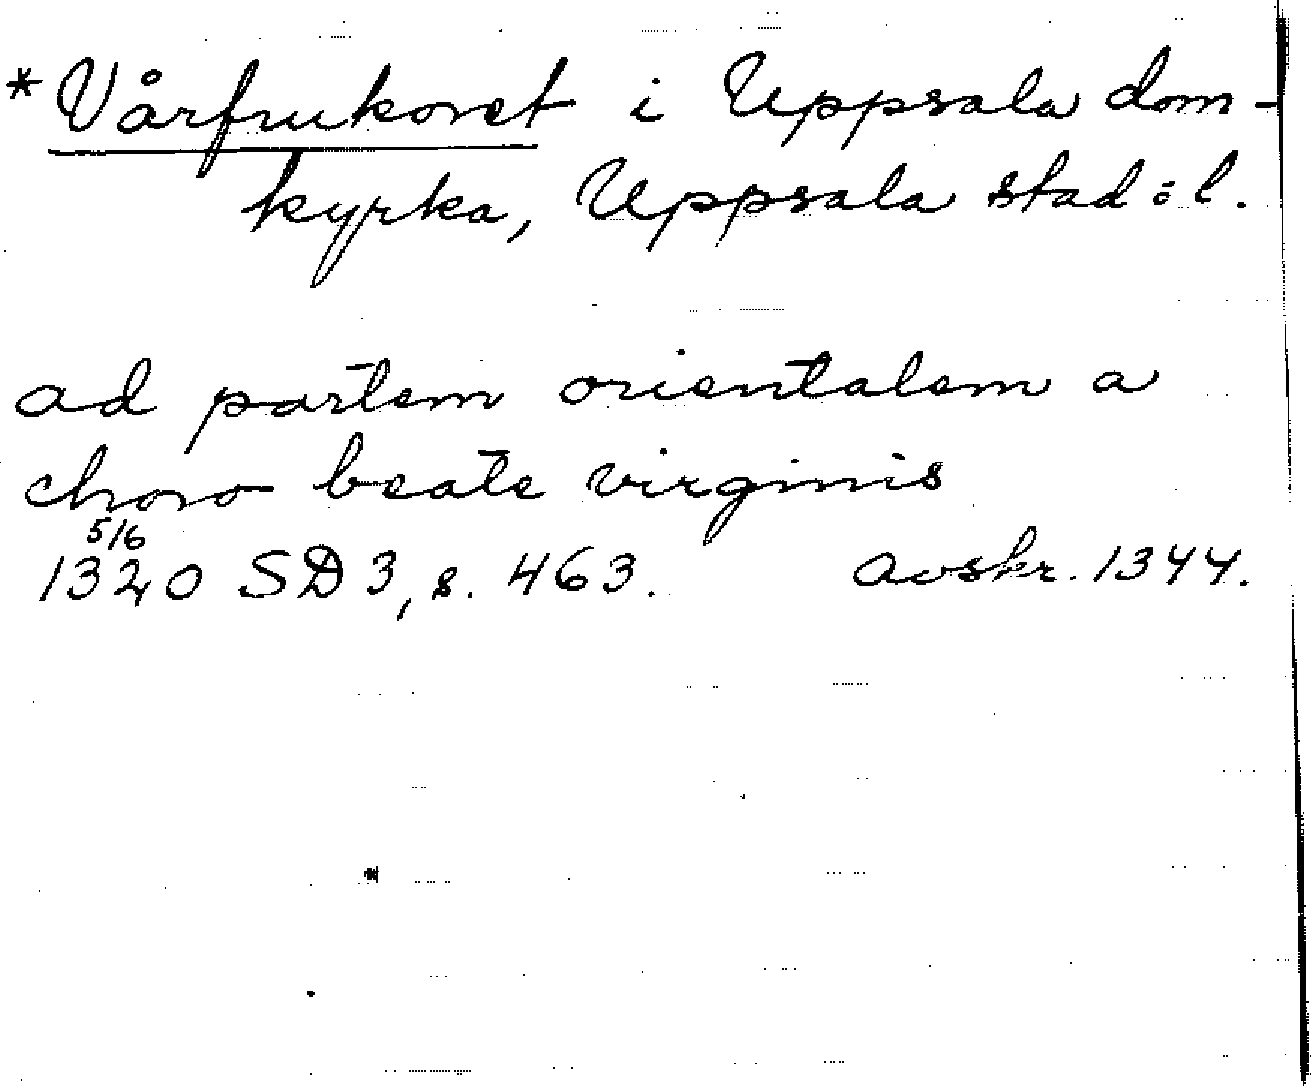 *Vårfrukoret i Uppsala dom-
kyrka, Uppsala stad o l.
ad partem orientalem a
choro beate virginis
5/6
1320 SD 3, s. 463. avskr. 1344.